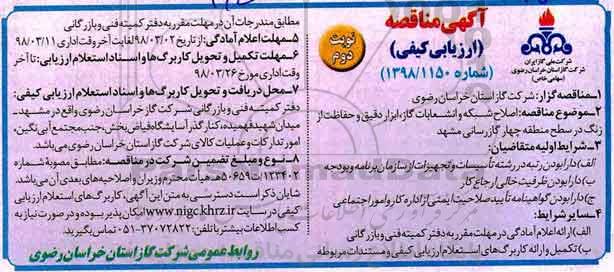 آگهی مناقصه
(ارزیابی کیفی)
(شماره ۱۳۹۸/۱۱۵۰)
نوبت دوم
شرکت ملی گاز ایران
شرکت گاز استان خراسان رضوی
(سهامی خاص)
۱ـ مناقصه گزار: شرکت گاز استان خراسان رضوی
۲ـ موضوع مناقصه: اصلاح شبکه و انشعابات گاز، ابزار دقیق و حفاظت از
زنگ در سطح منطقه چهار گازرسانی مشهد
۳ـ شرایط اولیه متقاضیان:
الف) دارا بودن رتبه در رشته تأسیسات و تجهیزات از سازمان برنامه و بودجه
ب) دارا بودن ظرفیت خالی ارجاع کار
ج) دارا بودن گواهینامه تأیید صلاحیت ایمنی از اداره کار و امور اجتماعی
۴ـ سایر شرایط:
الف) ارائه اعلام آمادگی در مهلت مقرر به دفتر کمیته فنی و بازرگانی
ب) تکمیل و ارائه کاربرگ‌های استعلام ارزیابی کیفی و مستندات مربوطه
مطابق مندرجات آن در مهلت مقرر به دفتر کمیته فنی و بازرگانی
۵ـ مهلت اعلام آمادگی: از تاریخ ۹۸/۰۳/۰۲ لغایت آخر وقت اداری ۹۸/۰۳/۱۱
۶ـ مهلت تکمیل و تحویل کاربرگ‌ها و اسناد استعلام ارزیابی: تا آخر
وقت اداری مورخ ۹۸/۰۳/۲۶
۷ـ محل دریافت و تحویل کاربرگ‌ها و اسناد استعلام ارزیابی کیفی:
دفتر کمیته فنی و بازرگانی شرکت گاز استان خراسان رضوی واقع در مشهد،
میدان شهید فهمیده، کنار گذر آسایشگاه فیاض بخش، جنب مجتمع آبی نگین،
امور تدارکات و عملیات کالای شرکت گاز استان خراسان رضوی می‌باشد.
۸ـ نوع و مبلغ تضمین شرکت در مناقصه: مطابق مصوبه شماره
۱۲۳۴۰۲/ت۵۰۶۵۹هـ هیأت محترم وزیران و اصلاحیه‌های بعدی آن می‌باشد.
شایان ذکر است دسترسی به متن این آگهی، کاربرگ‌های استعلام ارزیابی
کیفی در سایت www.nigc.khrz.ir امکان پذیر بوده و در صورت نیاز به
کسب اطلاعات بیشتر با تلفن: ۳۷۰۷۲۸۲۲-۰۵۱ تماس بگیرید.
روابط عمومی شرکت گاز استان خراسان رضوی